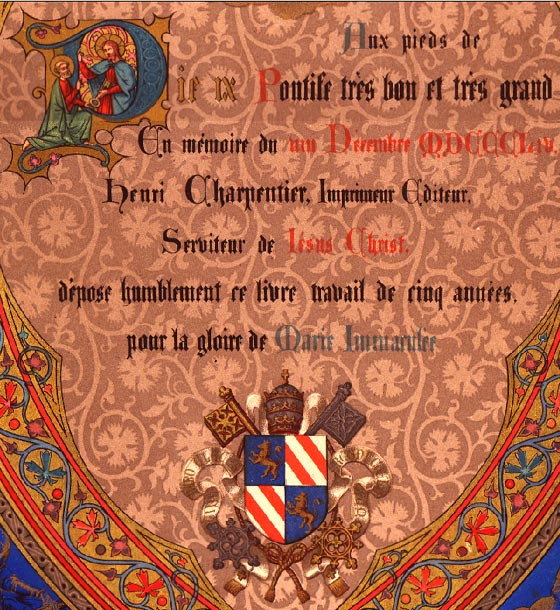 Aux pieds de
Pie IX Pontife très bon et très grand
En mémoire du VIII Décembre MDCCCLIV,
Henri Charpentier, Imprimeur Editeur,
Serviteur de Iésus Christ,
dépose humblement ce livre travail de cinq années,
pour la gloire de Marie Immaculée